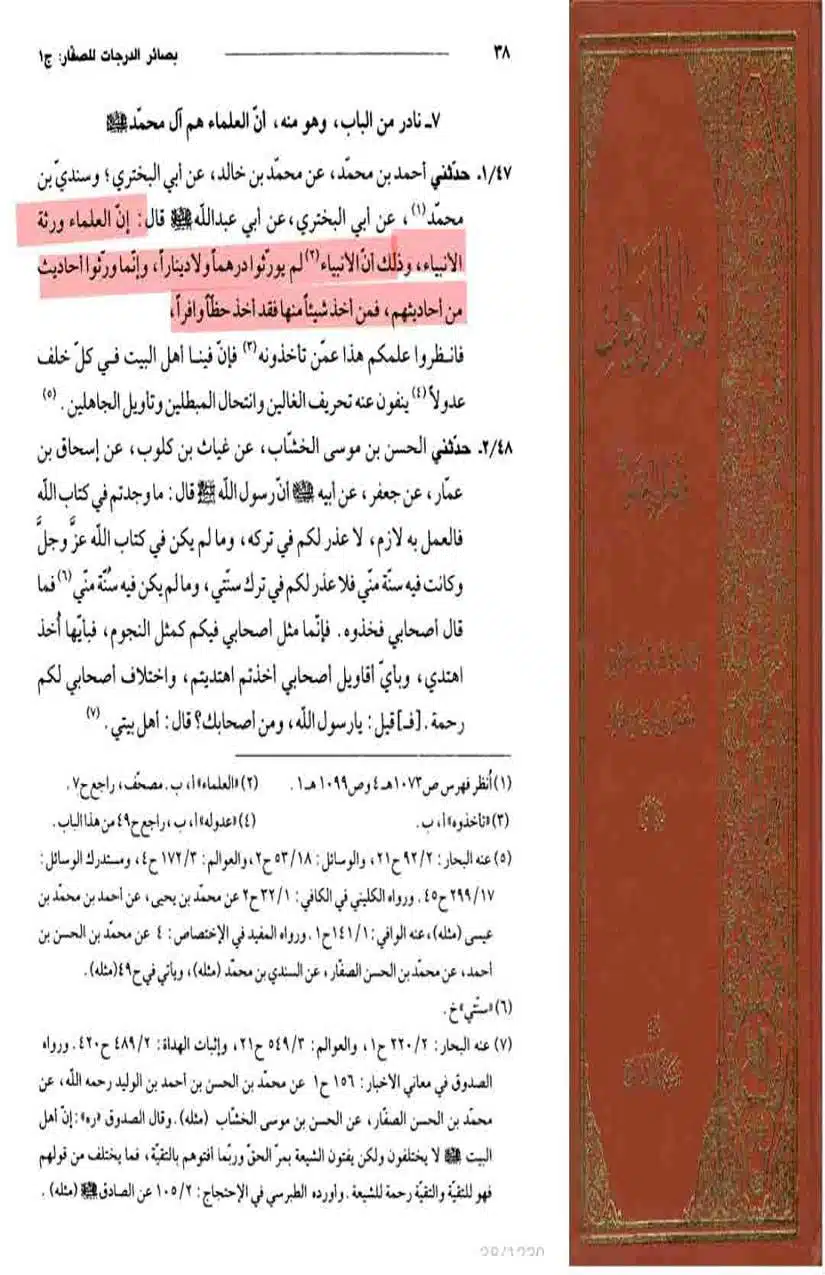 ٣٨ بصائر الدرجات للصفّار: ج١
٧ـ نادر من الباب، وهو منه، انّ العلماء هم آل محمّد ﷺ
١/٤٧. حدّثني أحمد بن محمّد، عن محمّد بن خالد، عن أبي البختري؛ وسنديّ بن
محمّد(١)، عن أبي البختري، عن أبي عبدالله ﷺ قال: إنّ العلماء ورثة
الأنبياء، وذلك أنّ الأنبياء(٢) لم يورّثوا درهماً ولا ديناراً، وإنّما ورّثوا أحاديث
من أحاديثهم، فمن أخذ شيئاً منها فقد أخذ حظّاً وافراً،
فانظروا علمكم هذا عمّن تأخذونه(٣) فإنّ فينا أهل البيت في كلّ خلف
عدولاً(٤) ينفون عنه تحريف الغالين وانتحال المبطلين وتاويل الجاهلين. (٥)
٢/٤٨. حدّثني الحسن بن موسى الخشّاب، عن غياث بن كلوب، عن إسحاق بن
عمّار، عن جعفر، عن أبيه أنّ رسول اللّه ﷺ قال: ما وجدتم في كتاب اللّه
فالعمل به لازم، لا عذر لكم في تركه، وما لم يكن في كتاب اللّه عزَّ وجلَّ
وكانت فيه سنّة منّي فلا عذر لكم في ترك سنّتي، وما لم يكن فيه سُنّة منّي(٦) فما
قال أصحابي فخذوه. فإنّما مثل أصحابي فيكم كمثل النجوم، فبأيّها أُخذ
اهتدي، وبأيّ أقاويل أصحابي أخذتم اهتديتم، واختلاف أصحابي لكم
رحمة. [فـ] قيل: يارسول اللّه، ومن أصحابك؟ قال: أهل بيتي. (٧)
(١) أُنظر فهرس ص١٠٧٣هـ٤ وص١٠٩٩هـ١. (٢) «العلماء» أ، ب. مصحّف، راجع ح٧.
(٣) «تأخذوه» أ، ب. (٤) «عدوله» أ، ب، راجع ح٤٩ من هذا الباب.
(٥) عنه البحار: ٩٢/٢ ح٢١، والوسائل: ٥٣/١٨ ح٢، والعوالم: ١٧٢/٣ ح٤، ومستدرك الوسائل:
٢٩٩/١٧ ح٤٥. ورواه الكليني في الكافي: ٣٢/١ ح٢ عن محمّد بن يحيى، عن أحمد بن محمّد بن
عيسى (مثله)، عنه الوافي: ١٤١/١ ح١. ورواه المفيد في الإختصاص: ٤ عن محمّد بن الحسن بن
أحمد، عن محمّد بن الحسن الصفّار، عن السندي بن محمّد (مثله)، ويأتي في ح٤٩ (مثله).
(٦) «سنّتي» خ.
(٧) عنه البحار: ٢٢٠/٢ ح١، والعوالم: ٥٤٩/٣ ح٢١، وإثبات الهداة: ٤٨٩/٢ ح٤٢٠. ورواه
الصدوق في معاني الاخبار: ١٥٦ ح١ عن محمّد بن الحسن بن أحمد بن الوليد رحمه اللّه، عن
محمّد بن الحسن الصفّار، عن الحسن بن موسى الخشّاب (مثله). وقال الصدوق «ره»: إنّ أهل
البيت لا يختلفون ولكن يفتون الشيعة بمرّ الحقّ وربّما أفتوهم بالتقيّة، فما يختلف من قولهم
فهو للتقيّة والتقيّة رحمة للشيعة. وأورده الطبرسي في الإحتجاج: ١٠٥/٢ عن الصادق (مثله).